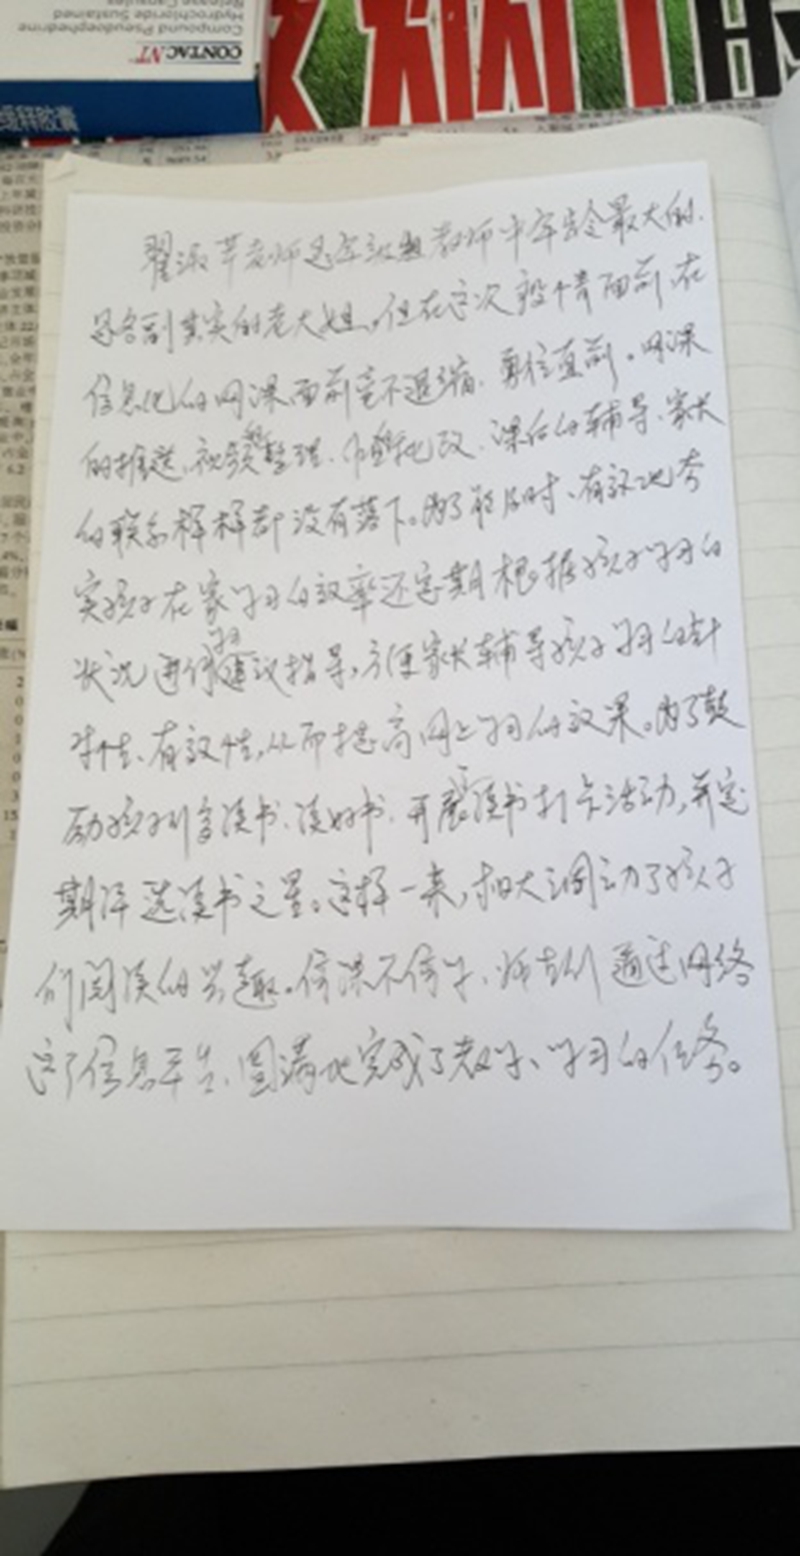 CONTACNT
Compound Pseudoephedrine
Hydrochloride Sustained
Release Capsules
缓释胶囊
翟淑苹老师是年级组教师中年龄最大的、
是名副其实的老大姐。但在这次疫情面前,在
信息化的网课面前毫不退缩、勇往直前。网课
的推送、视频整理、作业批改、课后的辅导、家长
的联系样样都没有落下。为了能及时、有效地夯
实孩子在家学习的效率还定期根据孩子学习的
状况进行学习建议指导,方便家长辅导孩子学习的针
对性、有效性,从而提高网上学习的效果。为了鼓
励孩子们多读书、读好书、开展读书打卡活动,并定
期评选读书之星。这样一来,极大调动了孩子
们阅读的兴趣。停课不停学、师生们通过网络
这个信息平台、圆满地完成了教学、学习的任务。